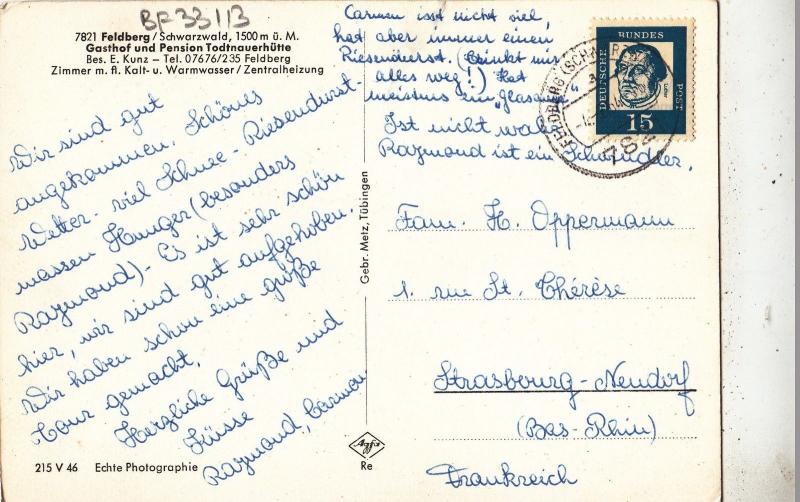 BF 33113
7821 Feldberg/Schwarzwald, 1500 m ü. M.
Gasthof und Pension Todtnauerhütte
Bes. E. Kunz — Tel. 07676/235 Feldberg
Zimmer m. fl. Kalt- u. Warmwasser / Zentralheizung
Wir sind gut
angekommen. Schönes
Wetter - viel Schnee - Riesendurst -
massen Hunger (besonders
Raymond) - Es ist sehr schön
hier, wir sind gut aufgehoben.
Wir haben schon eine größe
Tour gemacht.
Herzliche Grüße und
Küsse
Raymond, Carmen
215 V 46 Echte Photographie
Gebr. Metz, Tübingen
Agfa
Re
Carmen isst nicht viel,
hat aber immer einen
Riesendurst. (trinkt mir
alles weg!) Hat
meistens ein „glasaug"
Ist nicht wahr
Raymond ist ein Schwindler.
DEUTSCHE BUNDES POST
15
FELDBERG (SCHWARZW
Fam. H. Oppermann
1. rue St. Thérèse
Strasbourg-Neudorf
(Bas-Rhin)
Frankreich